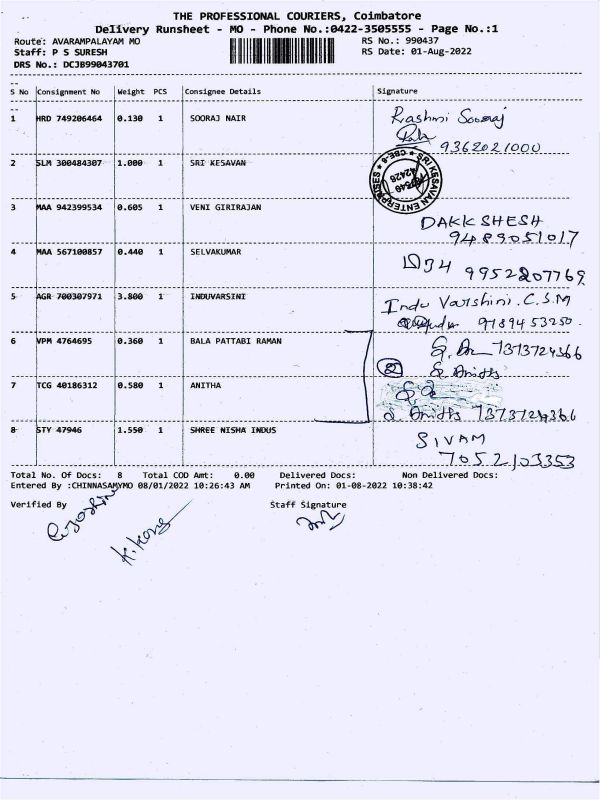 THE PROFESSIONAL COURIERS, Coimbatore
Delivery Runsheet - MO - Phone No.:0422-3505555 - Page No.:1
Route: AVARAMPALAYAM MO RS No.: 990437
Staff: P S SURESH RS Date: 01-Aug-2022
DRS No.: DCJB99043701
S No Consignment No Weight PCS Consignee Details Signature
1 HRD 749206464 0.130 1 SOORAJ NAIR Rashmi Sooraj
9362021000
2 SLM 300484307 1.000 1 SRI KESAVAN
SRI KESAVAN ENTERPRISES * CBE-6 *
3 MAA 942399534 0.605 1 VENI GIRIRAJAN DAKKSHESH
9489051017
4 MAA 567100857 0.440 1 SELVAKUMAR 9952207769
5 AGR 700307971 3.800 1 INDUVARSINI Indu Varshini.C.S.M
9789453250
6 VPM 4764695 0.360 1 BALA PATTABI RAMAN 7373724366
2
7 TCG 40186312 0.580 1 ANITHA
7373724366
8 STY 47946 1.550 1 SHREE NISHA INDUS SIVAM
7052103353
Total No. Of Docs: 8 Total COD Amt: 0.00 Delivered Docs: Non Delivered Docs:
Entered By :CHINNASAMYMO 08/01/2022 10:26:43 AM Printed On: 01-08-2022 10:38:42
Verified By Staff Signature